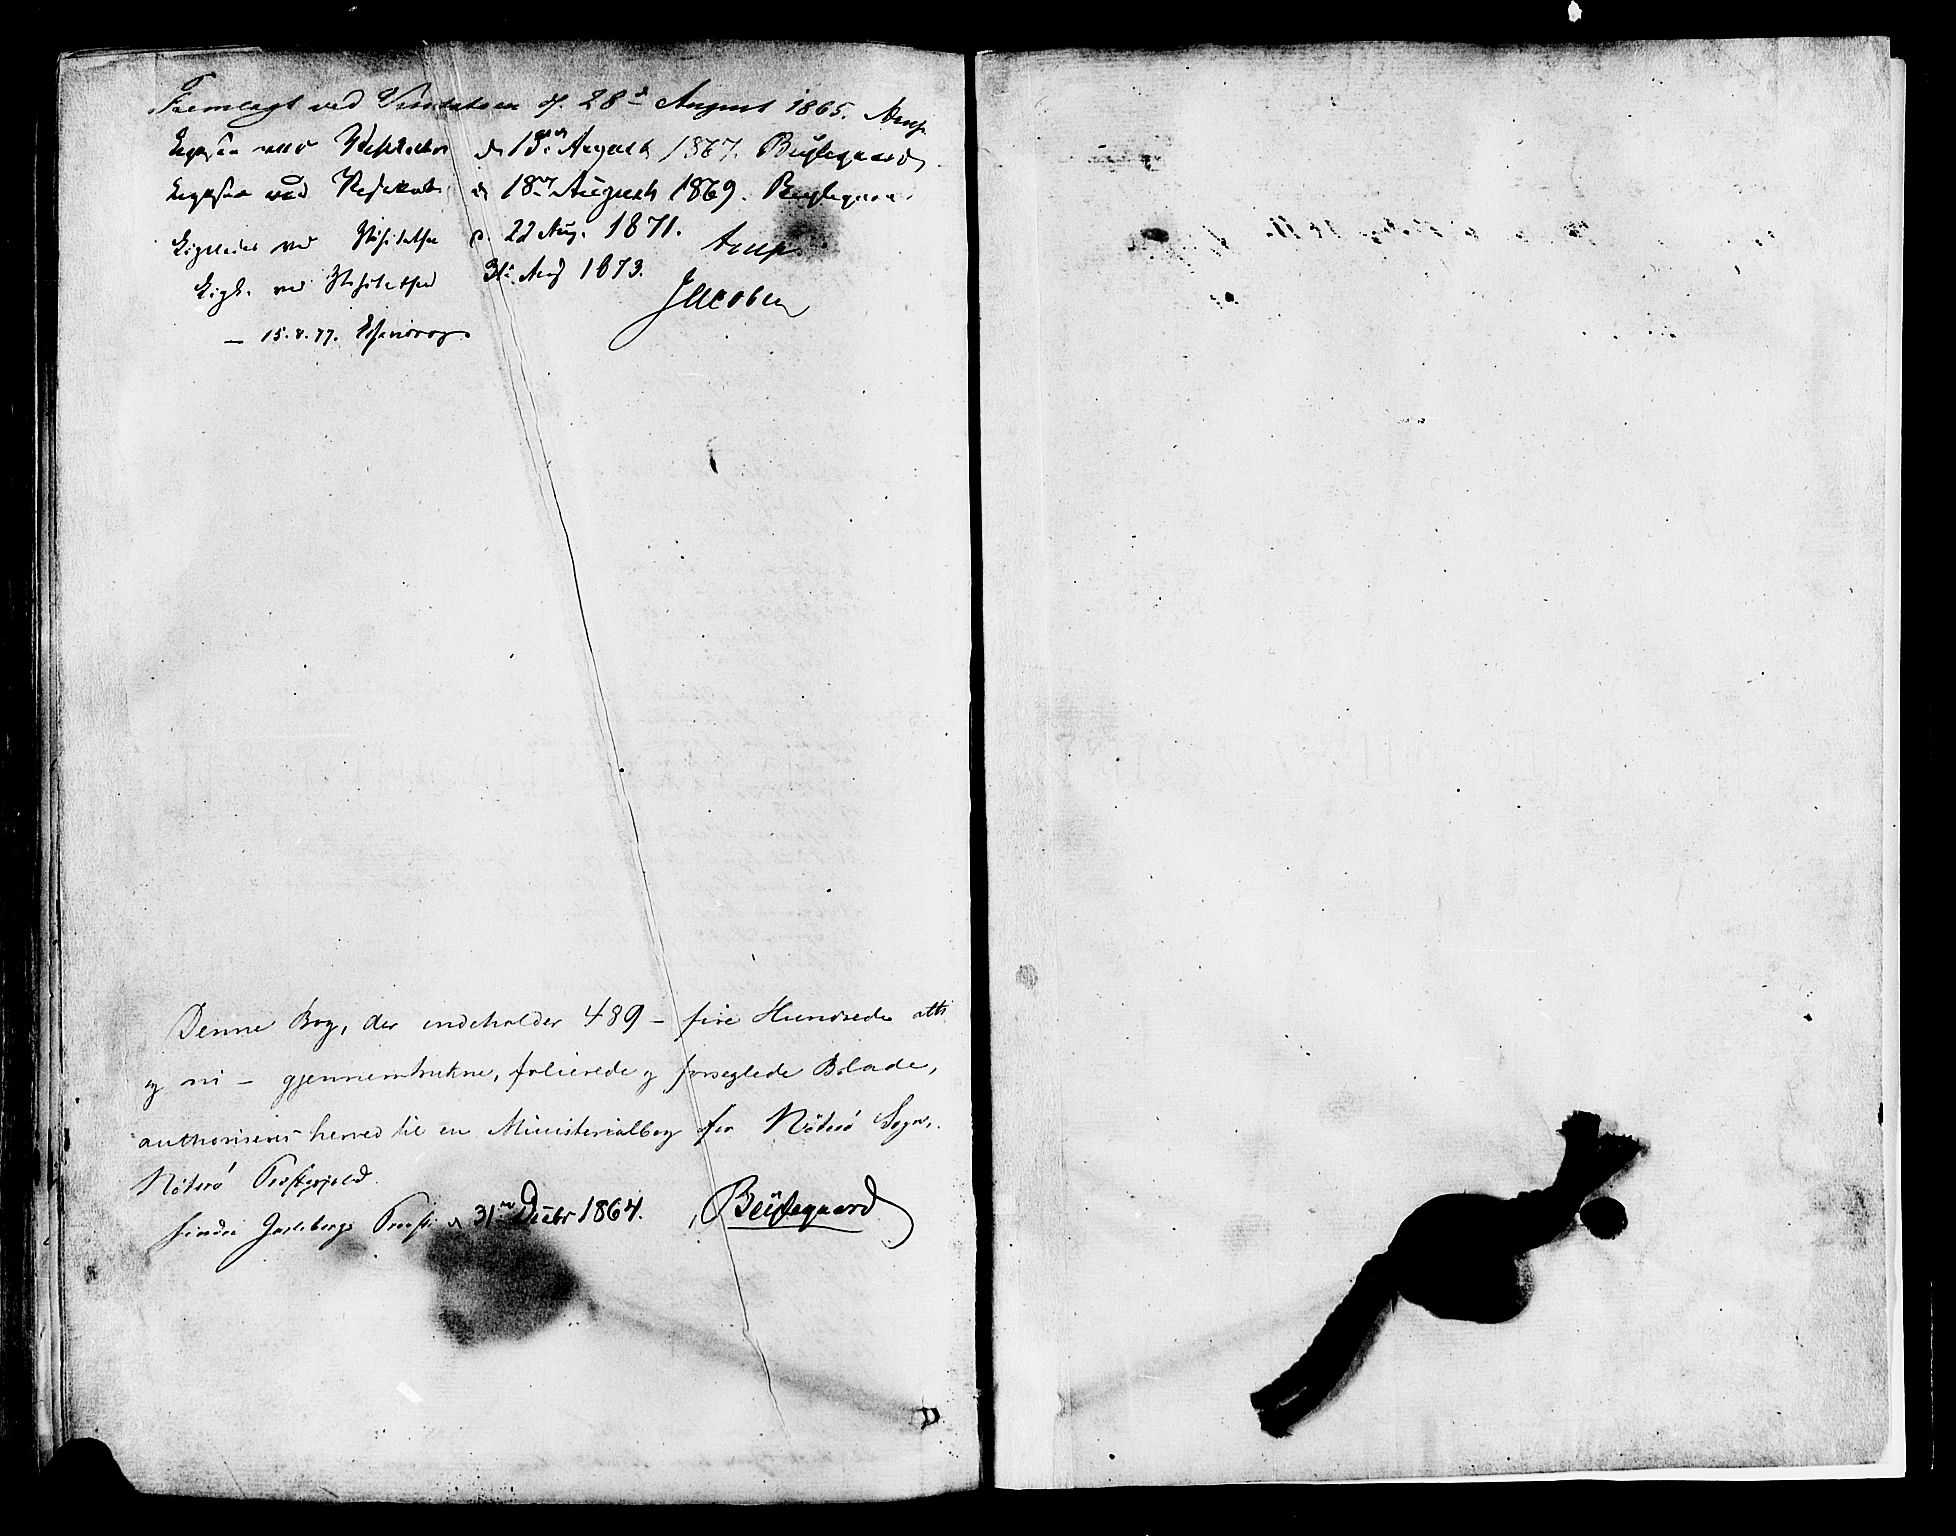 Fremlagt ved Visitatsen d. 28de August 1865. Arup
Ligesaa ved Visitatsen d 13de August 1867. Bugtegaard
Ligesaa ved Visitats d 18de August 1869. Bugtegaard
Ligeledes ved Visitatsen d. 22 Aug. 1871. Arup
Ligel. ved Visitatsen 31. Aug 1873.
JJacobsen
— 15.8.77.
Denne Bog, der indeholder 489 – fire Hundrede otti
og ni – gjennemtrukne, folierede og forseglede Blade,
authoriseres herved til en Ministerialbog for Nöterö Sogn,
Nöterö Præstegjeld.
Jarlsbergs Provsti d 31te Decbr 1864. Bugtegaard